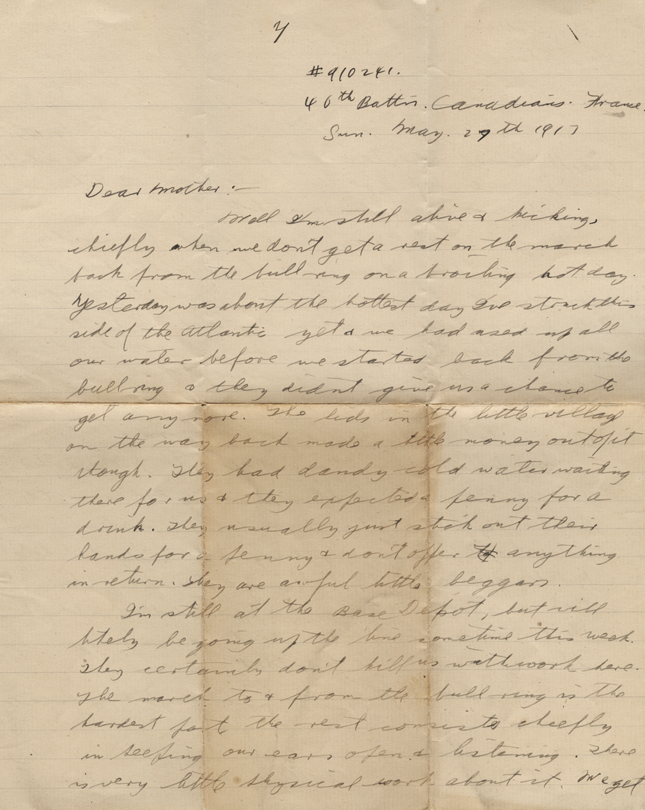 #910241.
46th Battn. Canadians. France.
Sun. May. 27th 1917
Dear Mother:—
Well I'm still alive & kicking,
chiefly when we don't get a rest on the march
back from the bull ring on a broiling hot day.
Yesterday was about the hottest day I've struck this
side of the Atlantic yet & we had used up all
our water before we started back from the
bull ring & they didn't give us a chance to
get any more. The kids in the little village
on the way back made a little money out of it
though. They had dandy cold water waiting
there for us & they expected a penny for a
drink. They usually just stick out their
hands for a penny & don't offer anything
in return. They are awful little beggars.
I'm still at the Base Depot, but will
likely be going up the line sometime this week.
They certainly don't kill us with work here.
The march to & from the bull ring is the
hardest part the rest consists chiefly
in keeping our ears open & listening. There
is very little physical work about it. We get